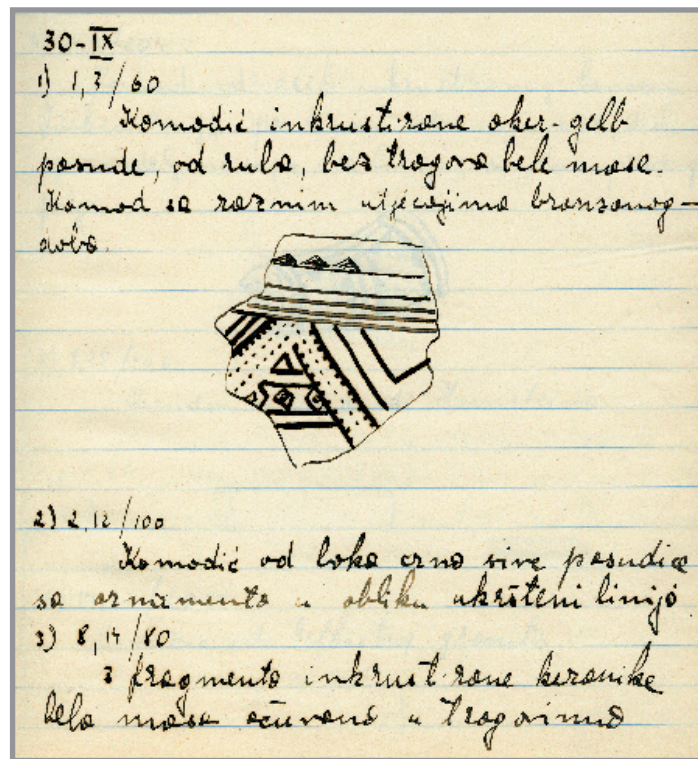 30-IX
1) 1,3/60
Komodić inkrustirane oker-gelb
posude, od ruba, bez tragova bele mase.
Komod sa raznim utjecajima bronsanog-
doba.
2) 2,12/100
Komodić od loka crno sive posudice
sa ornamento u obliku ukršteni linijo
3) 8,14/80
3 fragmenta inkrustirane keramike
bela masa očuvana u tragovima